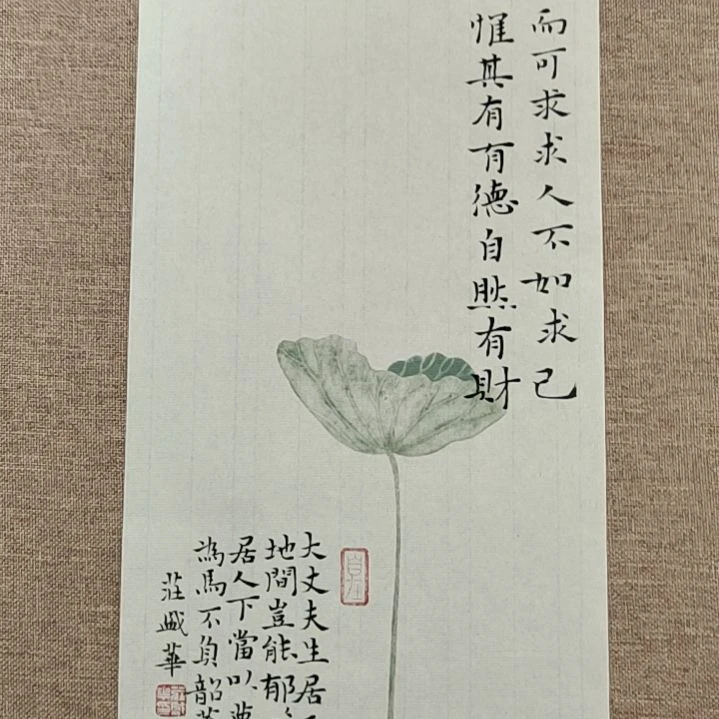 而可求求人不如求己
惟其有有德自然有財
大丈夫生居
地間豈能郁々
居人下當以夢
為馬不負韶華
莊盛華